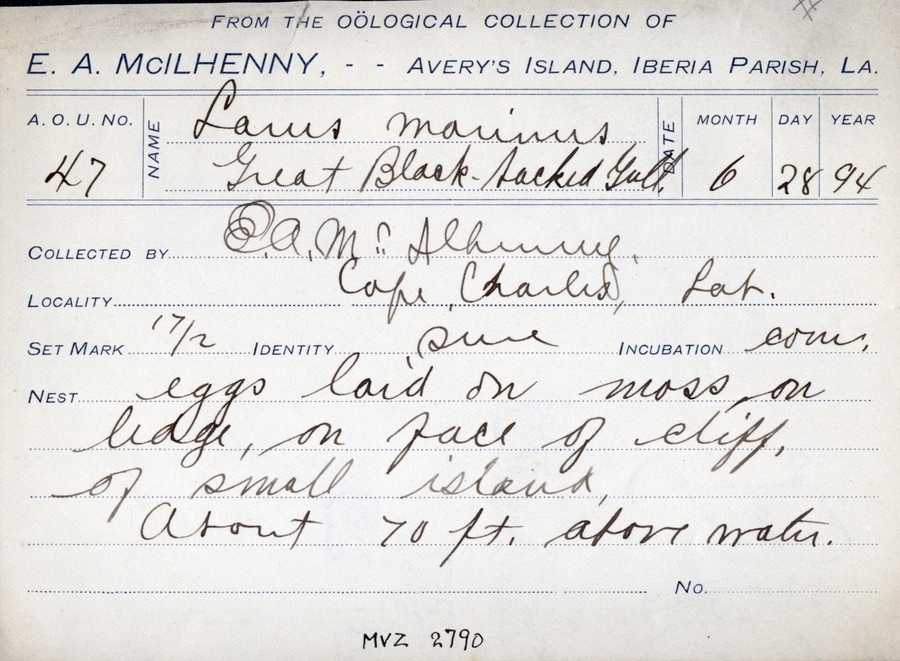 FROM THE OÖLOGICAL COLLECTION OF
E. A. MCILHENNY, - - AVERY'S ISLAND, IBERIA PARISH, LA.
A. O. U. No. NAME Larus marinus DATE MONTH DAY YEAR
47 Great Black-backed Gull. 6 28 94
COLLECTED BY E. A. McIlhenny.
LOCALITY Cape Charles, Lab.
SET MARK 17/2 IDENTITY sure INCUBATION com.
NEST eggs laid on moss, on
ledge, on face of cliff,
of small island,
About 70 ft. above water.
No.
MVZ 2790